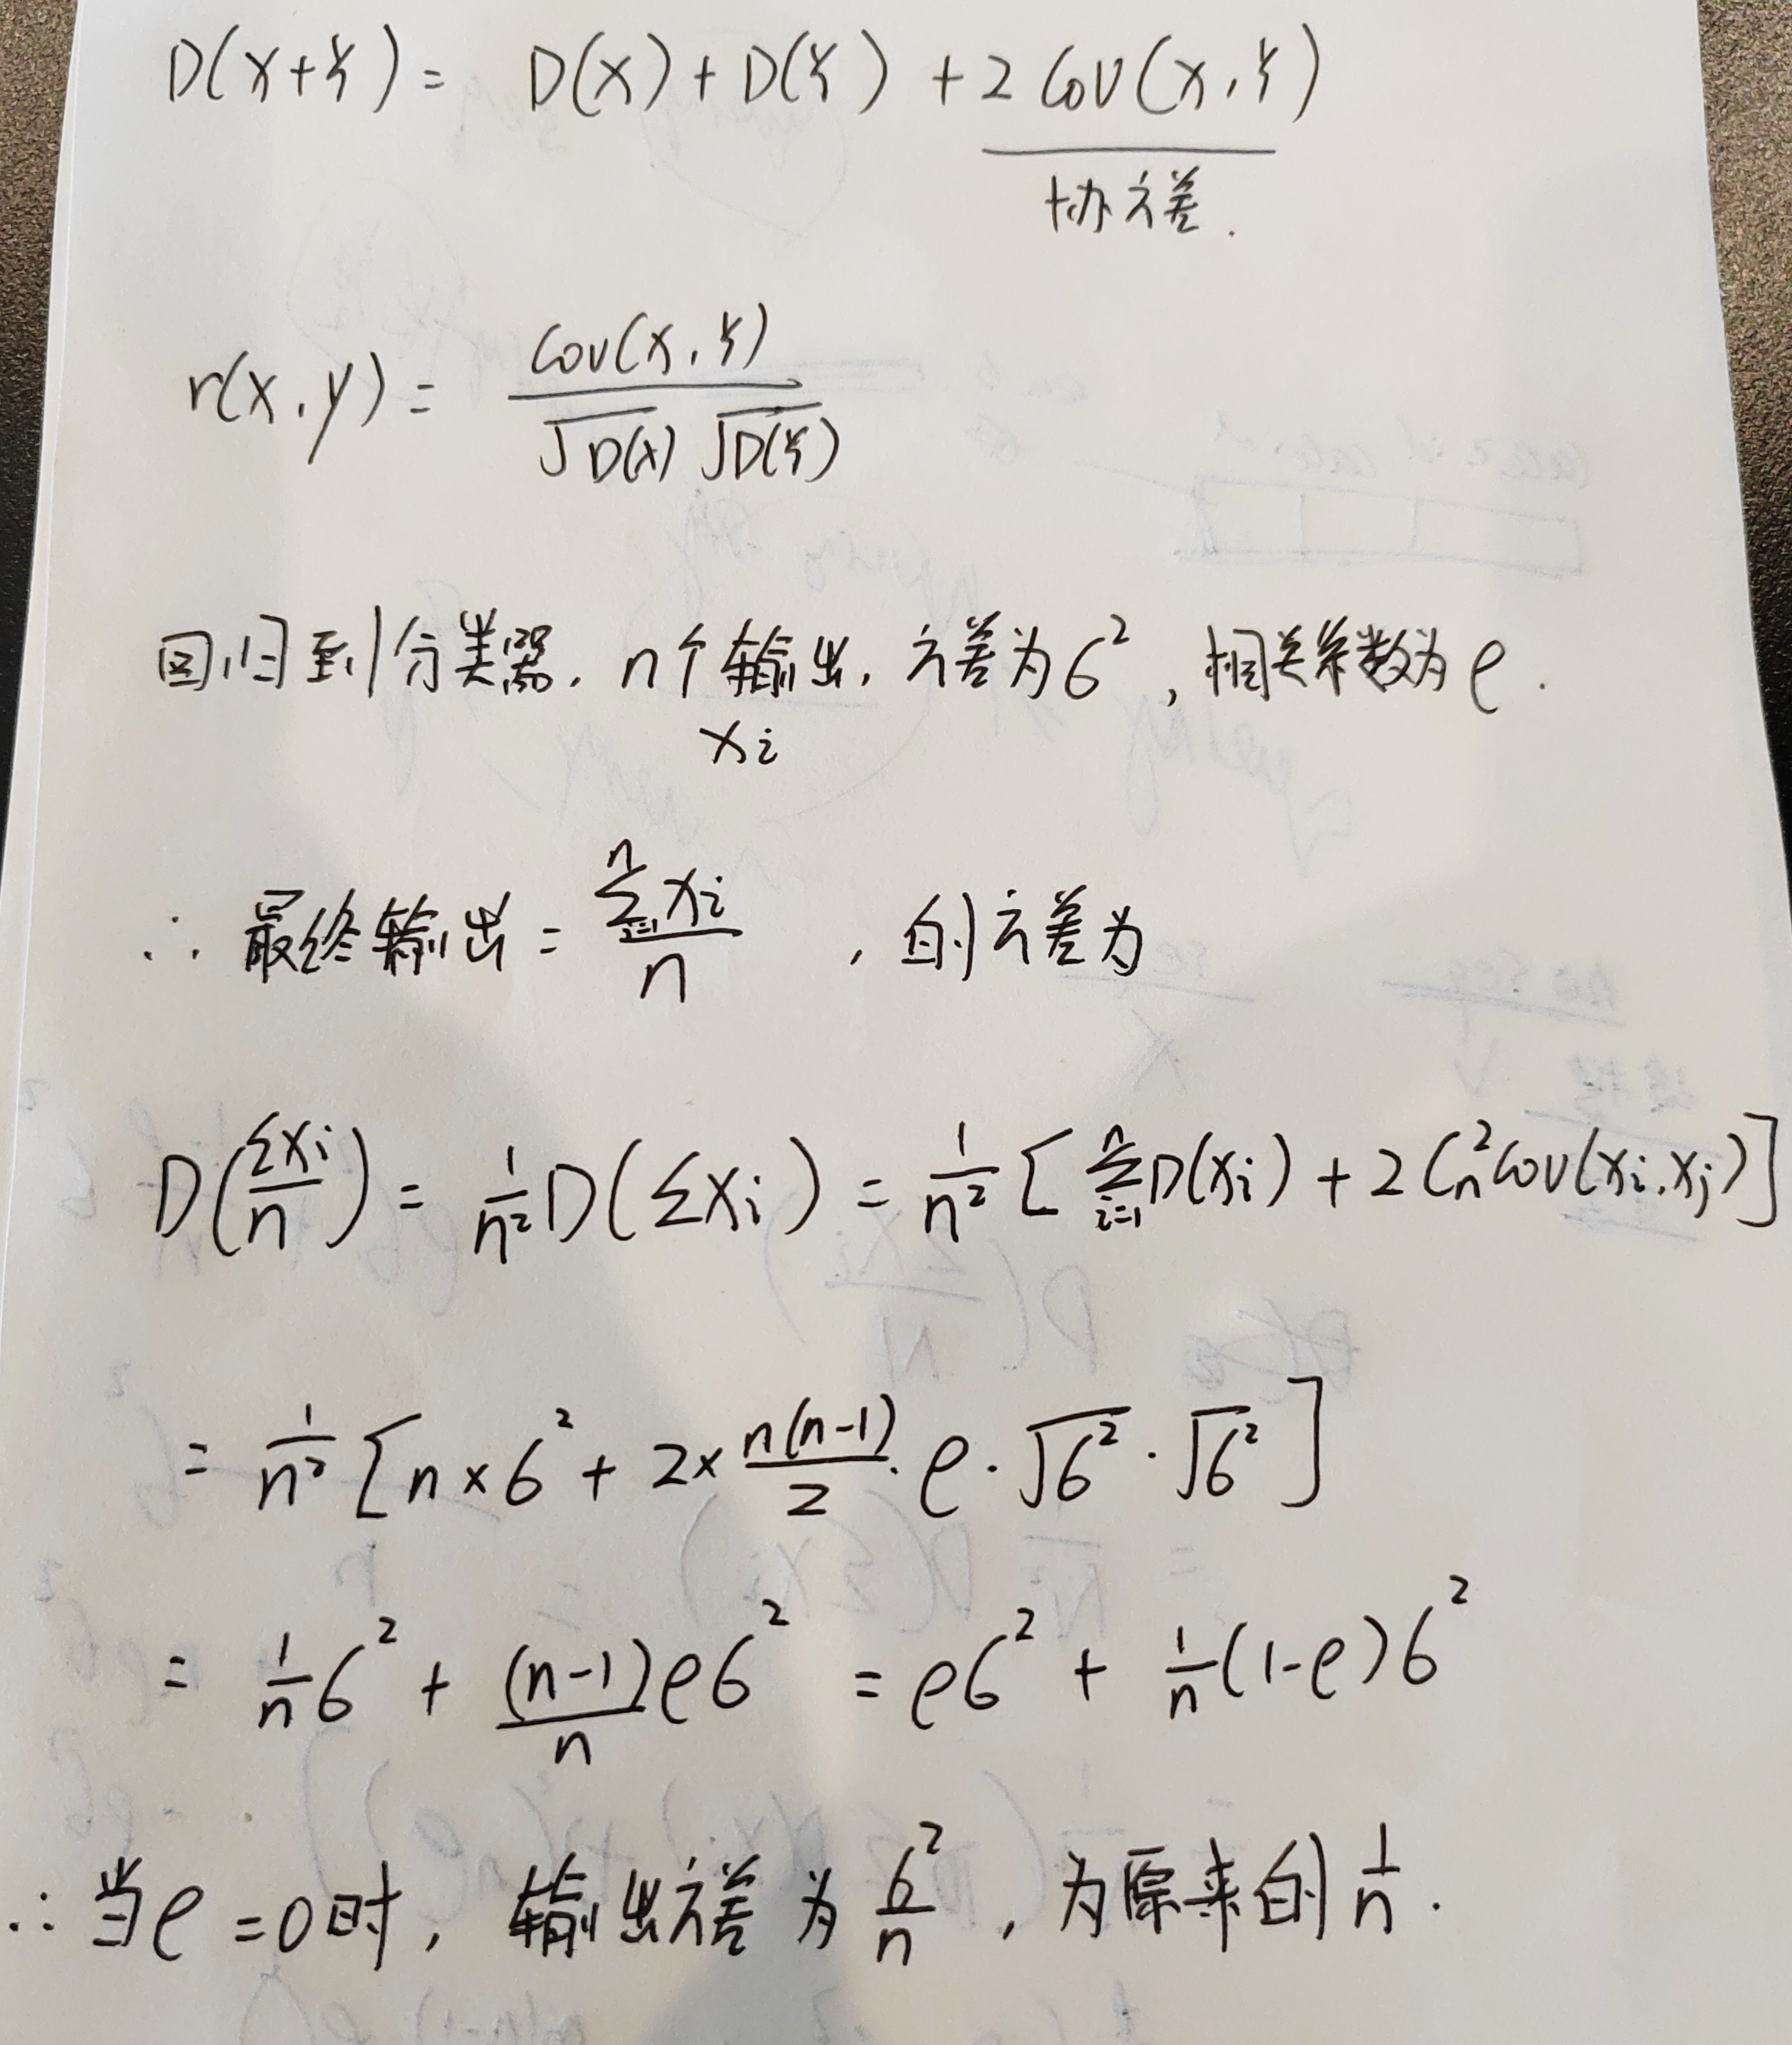 D(X+Y) = D(X) + D(Y) + 2 Cov(X, Y)
协方差.
r(X, Y) = Cov(X, Y) / √D(X) √D(Y)
回归到分类器, n个输出, 方差为 σ², 相关系数为 ρ.
xi
∴ 最终输出 = ∑ⁿᵢ₌₁ xi / n , 的方差为
D(∑xi / n) = 1/n² D(∑xi) = 1/n² [∑ⁿᵢ₌₁ D(xi) + 2 Cₙ² Cov(xi, xj)]
= 1/n² [n × σ² + 2 × n(n-1)/2 · ρ · √σ² · √σ²]
= 1/n σ² + (n-1)/n ρσ² = ρσ² + 1/n (1-ρ)σ²
∴ 当ρ = 0时, 输出方差为 σ²/n , 为原来的 1/n .